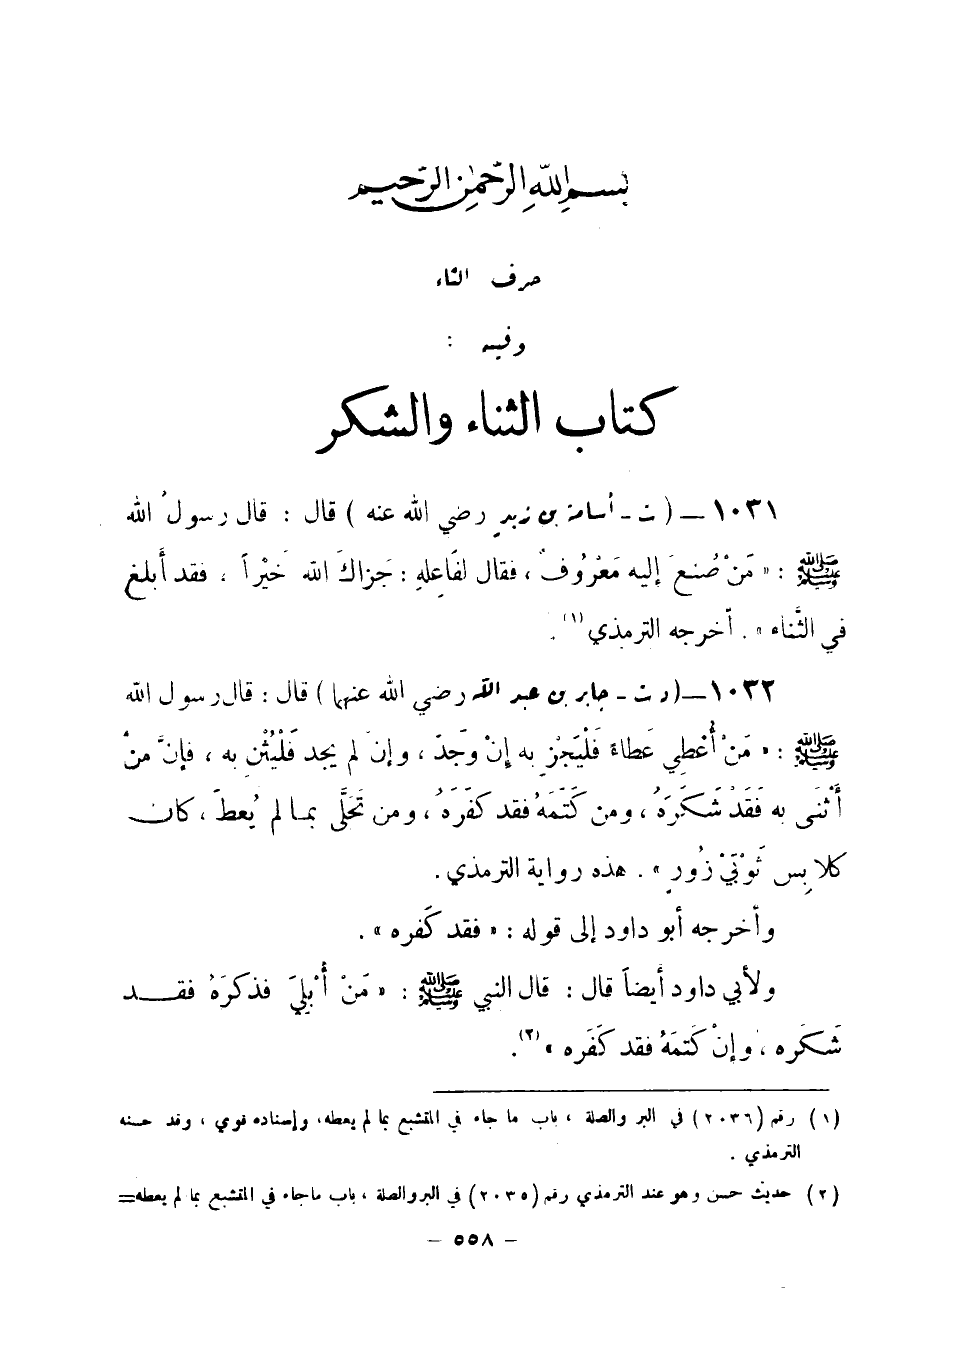 بسم الله الرحمن الرحيم
حرف الثاء
وفيه :
كتاب الثناء والشكر
١٠٣١ — ( ت - أسامة بن زيد رضي الله عنه ) قال : قال رسولُ الله
ﷺ : « مَنْ صُنعَ إليه مَعْرُوفٌ ، فقال لفَاعِلهِ : جَزاكَ الله خَيْراً ، فقد أبلغ
في الثَّناء » . أخرجه الترمذي (١) .
١٠٣٢ — ( د ت - جابر بن عبد الله رضي الله عنهما ) قال : قال رسول الله
ﷺ : « مَنْ أُعْطِي عَطاءً فَلْيَجْزِ به إنْ وَجَدَ ، وإن لم يجد فَلْيُثْنِ به ، فإنَّ منْ
أَثْنَى به فَقَدْ شَكَرَهُ ، ومن كَتَمَهُ فقد كَفَرَهُ ، ومن تَحَلَّى بمـا لم يُعطَ ، كان
كلابِس ثَوْبَيْ زُورٍ » . هذه رواية الترمذي .
وأخرجه أبو داود إلى قوله : « فقد كَفره » .
ولأبي داود أيضاً قال : قال النبي ﷺ : « مَنْ أُبْلِيَ فذكرَهُ فقـد
شَكَره ، وإنْ كَتمَهُ فقد كَفَره » (٢) .
(١) رقم (٢٠٣٦) في البر والصلة ، باب ما جاء في المتشبع بما لم يعطه، وإسناده قوي ، وقد حسنه
الترمذي .
(٢) حديث حسن وهو عند الترمذي رقم (٢٠٣٥) في البر والصلة ، باب ماجاء في المتشبع بما لم يعطه=
— ٥٥٨ —